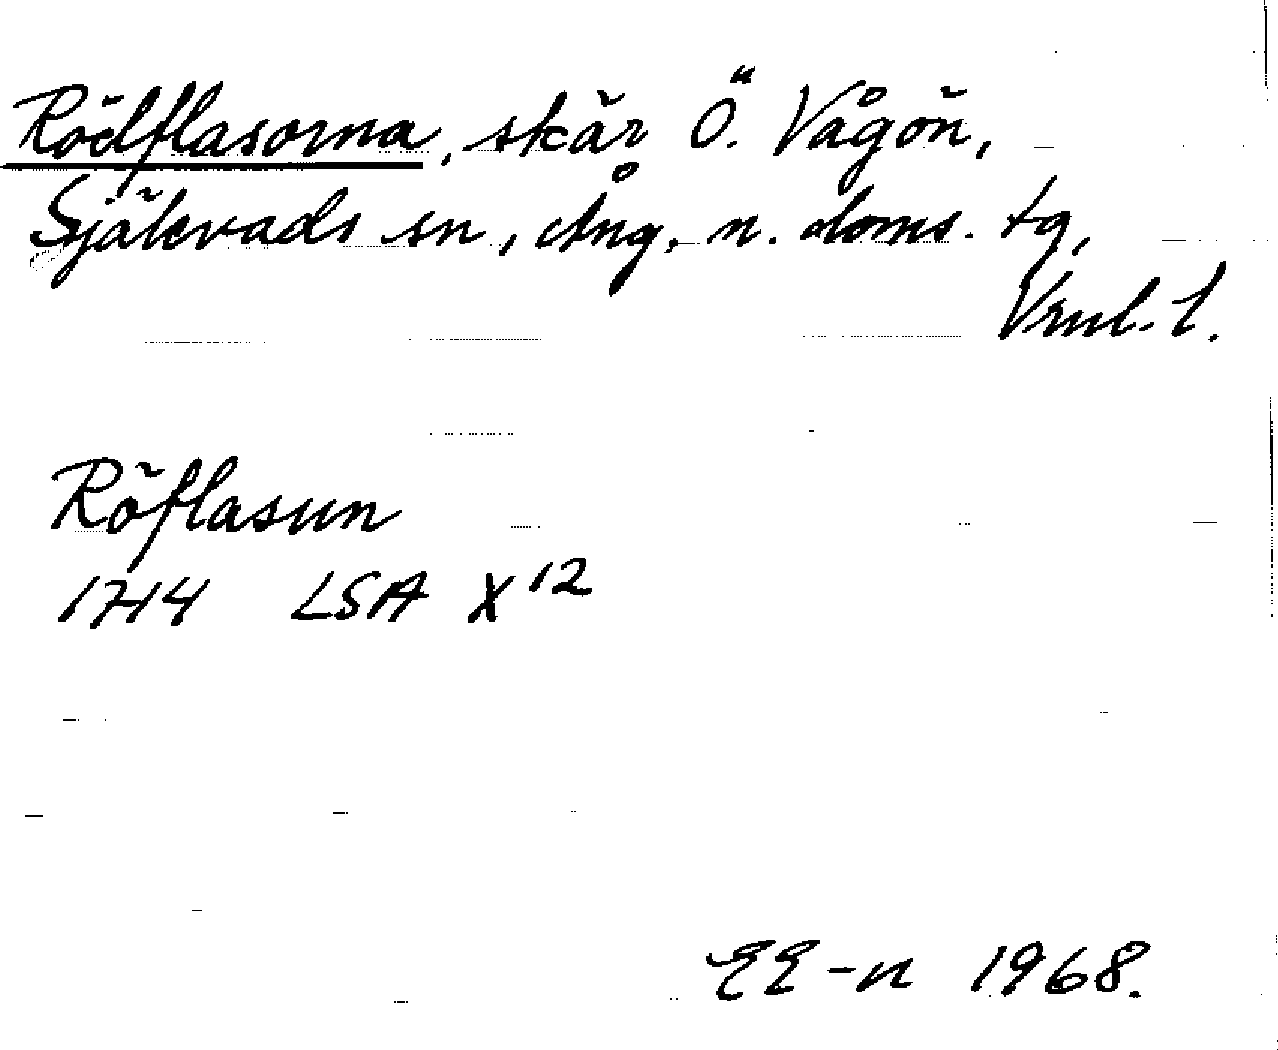 Rödflasorna, skär Ö. Vågön,
Själevads sn, Ång. n. doms. tg,
Vnul. l.
Röflasun
1714 LSA X12
EE-n 1968.